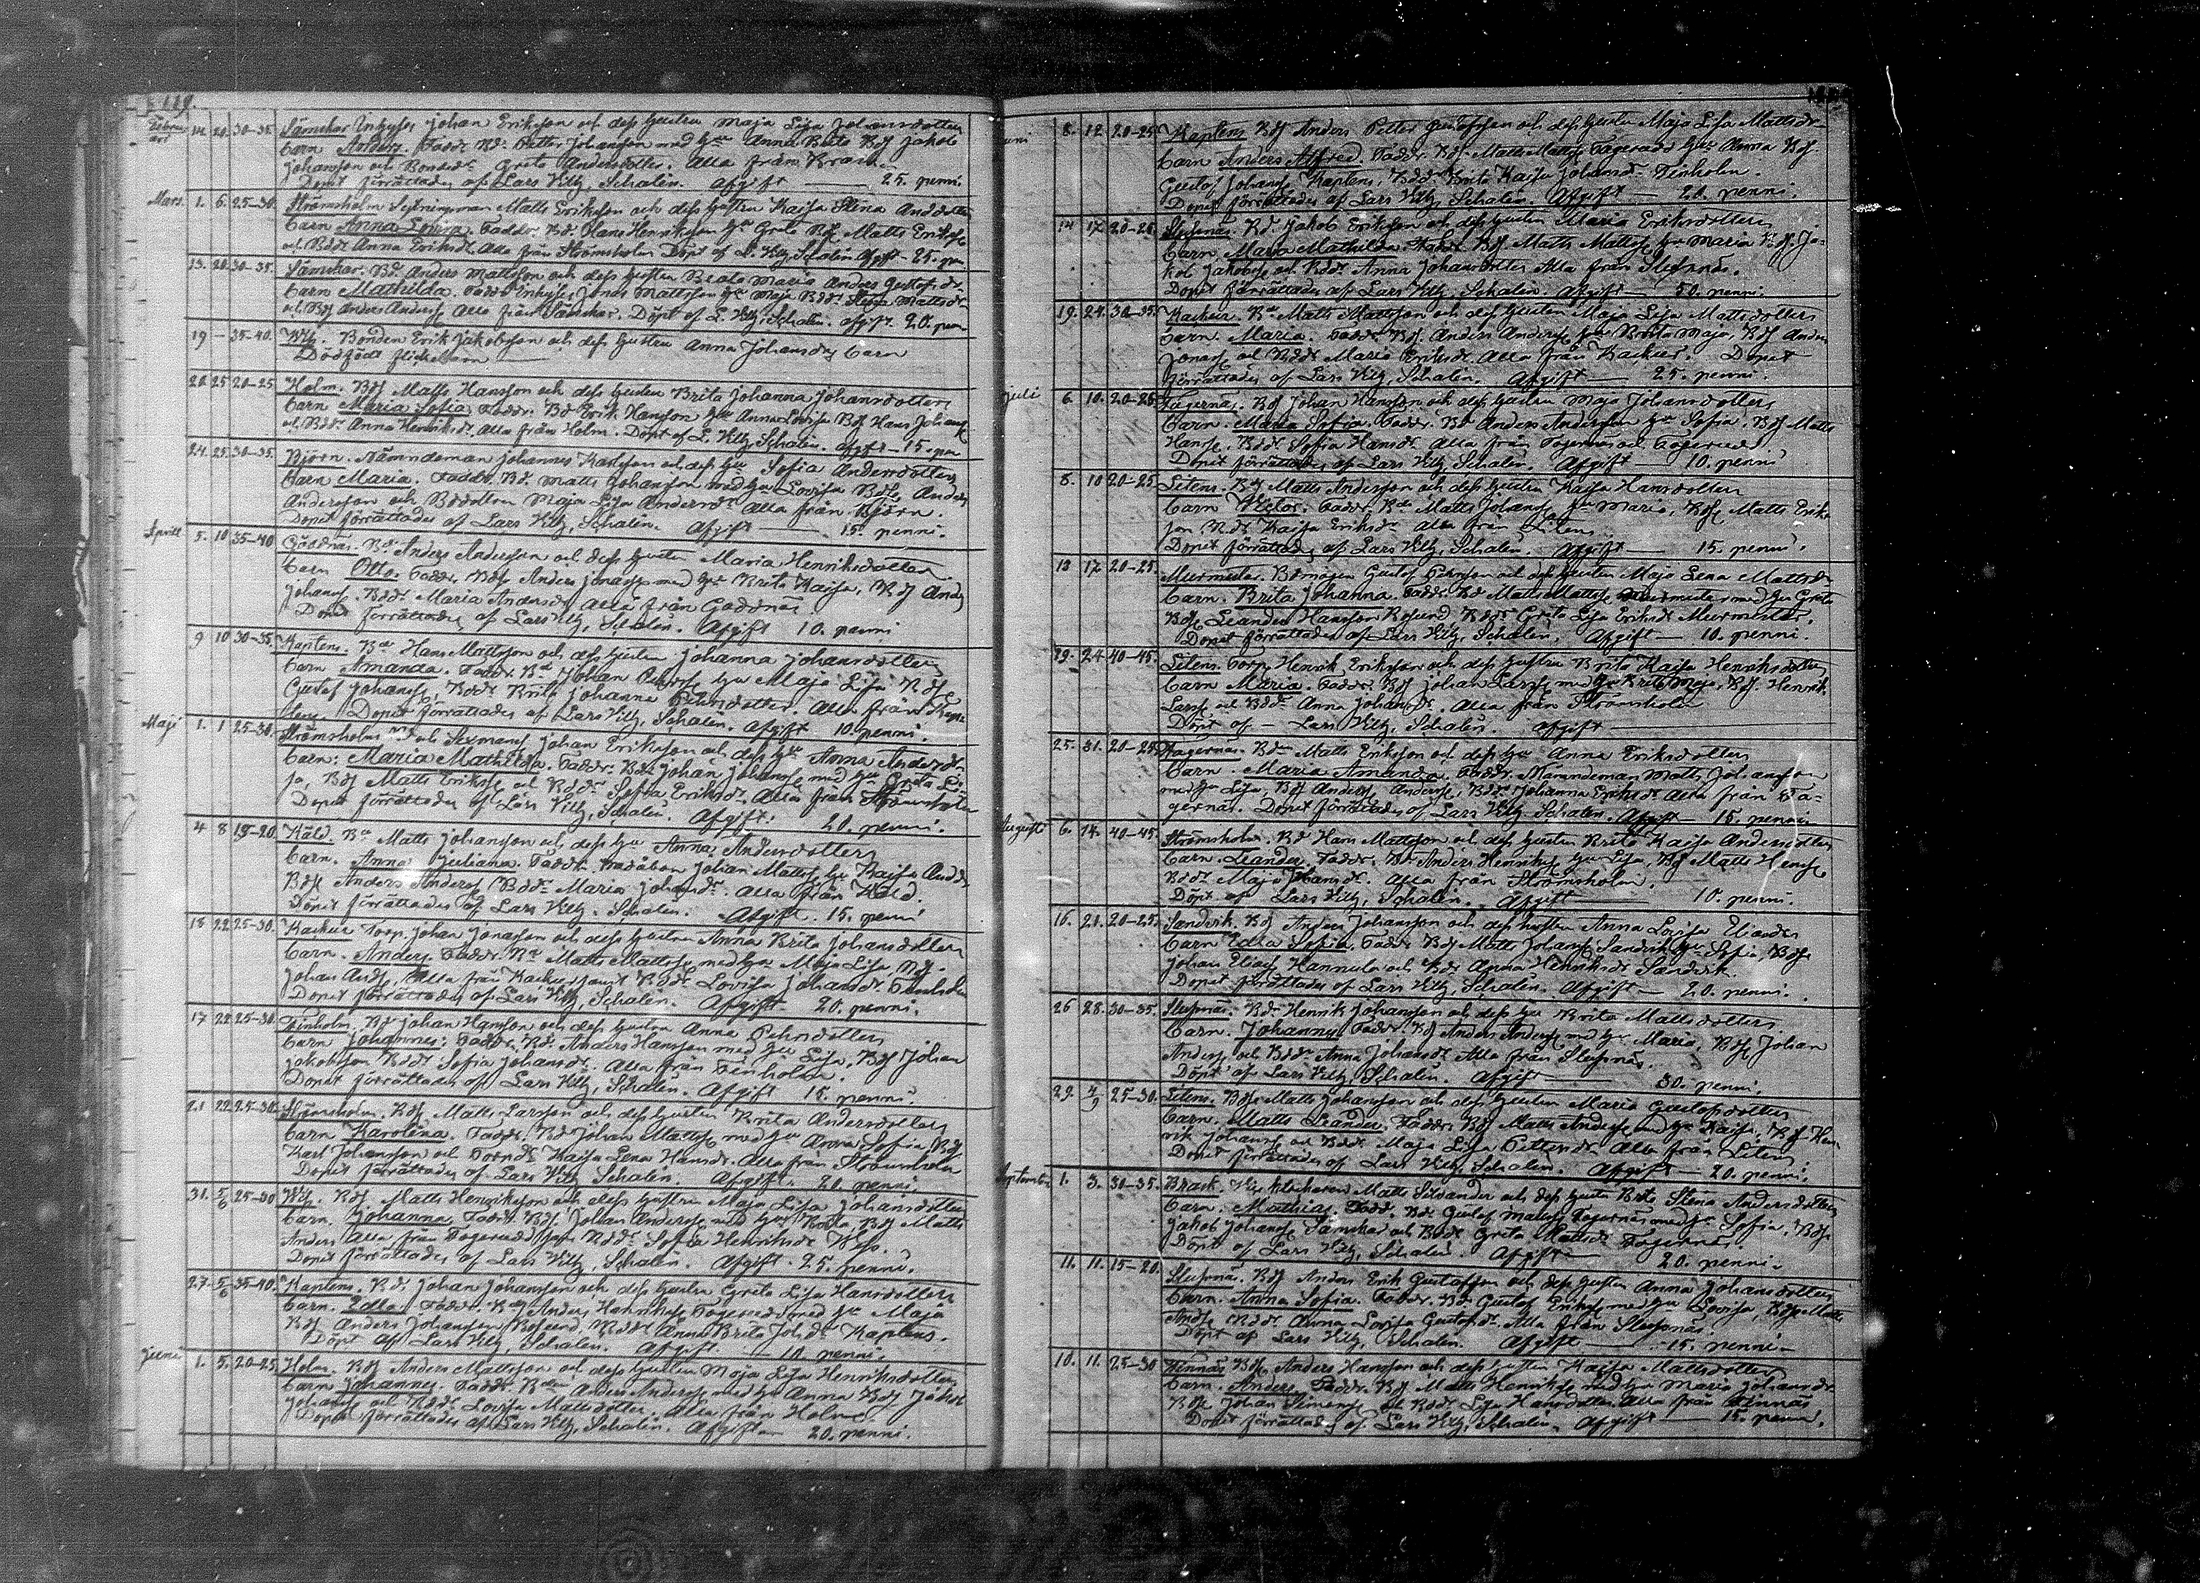 119.
Februari 14. 20. 30-35. Sämskar Inhyses Johan Eriksson och dess hustru Maja Lisa Johansdotters
barn Anders. Faddr. Bd. Petter Johansson med hu Anna Brita Bdſ Jakob
Johansson och Bondedr. Greta Andersdotter. Alla från
Dopet förrättades af Lars Vilh. Schalin. Afgift — 25. penni.
Mars. 1. 6. 25-30. Strömsholm Matts Eriksson och dess hustru Kaisa Stina Andersdotters
barn Anna Lovisa. Faddr. Bd. Hans Henriksson hu Greta Bdſ Matts Eriksson
och Bddr. Anna Eriksdr. Alla från Strömsholm Döpt af L. Vilh. Schalin Afgift 25. pen
13. 20. 30-35. Sämskar. Bd. Anders Mattsson och dess hustru Beata Maria Gustafsdr.
barn Mathilda. Faddr. Inhyses Jonas Mattsson hu Maja Bddr. Mattsdr
och Bdſ Anders Anderss. Alla från Sämskar. Döpt af L. Vilh. Schalin. Afgift. 20. pen.
19 — 35-40. Bonden Erik Jakobsson och dess hustru Anna Johansdrs barn
Dödfödt flickebarn
20. 25. 20-25 Holm. Bdſ Matts Hansson och dess hustru Brita Johanna Johansdotters
barn Maria Sofia. Faddr. Bd Erik Hansson hu Anna Lovisa Bdſ Hans Johanss
och Bddr. Anna Henriksdr. Alla från Holm. Döpt af L. Vilh. Schalin Afgift — 15. pen
24. 25. 30-35. Björn. Nämndeman Johannes Karlsson och dess hu Sofia Andersdotters
barn Maria. Faddr. Bd. Matts Johansson med hu Lovisa Bdſ Anders
Andersson och Bdedottren Maja Lisa Andersdr Alla från Björn.
Dopet förrättades af Lars Vilh. Schalin. Afgift — 15. penni.
April 5. 10 35-40 Gäddnäs. Bd. Anders Andersson och dess hustru Maria Henriksdotters
barn Otto. Faddr. Bdſ Anders Jonass med hu Brita Kaisa, Bdſ Anders
Johanss. Bddr. Maria Andersdr. Alla från Gäddnäs
Dopet förrättades af Lars Vilh. Schalin. Afgift 10. penni
9 10 30-35. Kaptens. Bd Hans Mattsson och dess hustru Johanna Johansdotters
barn Amanda. Faddr. Bd. Johan Perss hu Maja Lisa Bdſ
Gustaf Johanss, Bddr. Brita Johanna Pehrsdotter. Alla från Kap-
tens. Dopet förrättades af Lars Vilh. Schalin. Afgift 10. penni.
Maj 1. 1 25-30. Strömsholm Bd och Sexmans Johan Eriksson och dess hu Anna Andersdr
barn: Maria Mathilda. Faddr. Bd. Johan Johanss med hu Greta Li-
sa, Bdſ Matts Erikss och Bddr. Sofia Eriksdr. Alla från Strömsholm
Dopet förrättades af Lars Vilh. Schalin. Afgift. 20. penni.
4 8 15-20. Käld. Bd Matts Johansson och dess hu Anna Andersdotters
barn. Anna Juliana. Faddr. Johan Mattss hu Kaisa Andr.
Bdſ Anders Anderss Bddr. Maria Johansdr. Alla från Käld.
Dopet förrättades af Lars Vilh. Schalin. Afgift. 15. penni
18 22 25-30. Kackur Torp. Johan Jonasson och dess hustru Anna Brita Johansdotters
barn. Anders. Faddr. Bd Matts Mattss med hu Maja Lisa, Bdſ.
Johan Andss, Alla från Kackur samt Bddr Lovisa Johansdr.
Dopet förrättades af Lars Vilh. Schalin. Afgift. 20. penni.
17 22 25-30. Finholm. Bd Johan Hansson och dess hustru Anna Pehrsdotters
barn Johannes: Faddr. Bd. Anders Hansson med hu Lisa, Bdſ Johan
Jakobsson Bddr. Sofia Johansdr. Alla från Finholm.
Dopet förrättades af Lars Vilh. Schalin. Afgift 15. penni.
21 22 25-30. Strömsholm. Bdſ Matts Larsson och dess hustru Brita Andersdotters
barn Karolina. Faddr. Bd Johan Mattss med hu Anna Sofia, Bdſ
Karl Johansson och Kaisa Lena Hansdr. Alla från Strömsholm
Dopet förrättades af Lars Vilh. Schalin. Afgift. 20. penni.
31. 5/6 25-30 Bdſ. Matts Henriksson och dess hustru Maja Lisa Johansdotters
barn. Johanna. Faddr. Bdſ. Johan Anderss med hu Brita, Bdſ Matts
Anders Alla från Fagerudd Bddr Sofia Henriksdr
Dopet förrättades af Lars Vilh. Schalin. Afgift. 25. penni.
27. 5/6 35-40. Kaptens. Bd. Johan Johansson och dess hustru Greta Lisa Hansdotters
barn. Edla. Faddr. Bd Anders Henrikss Fagerudd med hu Maja
Bdſ Anders Johansson Roslund, Bddr. Anna Brita Johdr Kaptens.
Döpt af Lars Vilh. Schalin. Afgift — 10. penni.
Juni 1. 5. 20-25 Holm. Bdſ Anders Mattsson och dess hustru Maja Lisa Henriksdotters
barn Johannes. Faddr. Bd. Anders Anderss med hu Anna Bdſ Jakob
Johanss och Bddr. Lovisa Mattsdotter. Alla från Holm
Dopet förrättades af Lars Vilh. Schalin. Afgift — 20. penni.
Juni 8. 12. 20-25. Kaptens Bdſ Anders Petter Gustafsson och dess hustru Maja Lisa Mattsdr
barn Anders Alfred. Faddr. Bdſ. Matts Mattss Fagerudd hu Anna Bdſ.
Gustaf Johanss Kaptens, Bddr. Brita Kaisa Johansdr Finholm.
Dopet förrättades af Lars Vilh. Schalin. Afgift — 20. penni.
14 17. 20-25. Slussnäs. Bd. Jakob Eriksson och dess hustru Maria Eriksdotters
barn. Maria Mathilda. Faddr. Bdſ Matts Mattss hu Maria Bdſ Ja-
kob Jakobss och Bddr. Anna Johansdotter Alla från Slussnäs.
Dopet förrättades af Lars Vilh. Schalin. Afgift — 50. penni.
19. 24. 30-35. Kackur. Bd Matts Mattsson och dess hustru Maja Lisa Mattsdotters
barn. Maria. Faddr. Bdſ. Anders Anderss hu Brita Maja, Bdſ Anders
Jonass och Bddr Maria Eriksdr. Alla från Kackur. Dopet
förrättades af Lars Vilh. Schalin. Afgift — 25. penni.
Juli 6. 10. 20-25 Fagernäs. Bdſ Johan Hansson och dess hustru Maja Johansdotters
barn. Maria Sofia. Faddr. Bd Anders Andersson hu Sofia, Bdſ Matts
Hanss. Bddr Sofia Hansdr. Alla från Fagernäs och Fagerudd
Dopet förrättades af Lars Vilh. Schalin. Afgift — 10. penni
8. 10 20-25 Litens. Bdſ Matts Andersson och dess hustru Kaisa Hansdotters
barn Victor. Faddr. Bd Matts Johanss hu Maria, Bdſ Matts Eriks-
son Bddr Kaisa Eriksdr Alla från Litens
Dopet förrättades af Lars Vilh. Schalin. Afgift — 15. penni.
13 17. 20-25. Murmester. Gustaf Pehrsson och dess hustru Maja Lena Mattsdr
barn. Brita Johanna. Faddr. Bd Matts Mattss Murmesters med hu Greta
Bdſ Leander Hansson Roslund, Bddr. Greta Lisa Eriksdr Murmester.
Dopet förrättades af Lars Vilh. Schalin. Afgift — 10. penni.
19. 24. 40-45. Litens. Torp. Henrik Eriksson och dess hustru Brita Kaisa Henriksdotters
barn Maria. Faddr. Bdſ Johan Larss med hu Brita Maja, Bdſ. Henrik
Larss och Bddr. Anna Johansdr. Alla från Strömsholm
Döpt af — Lars Vilh. Schalin. Afgift —
25. 31. 20-25. Fagernäs. Bd Matts Eriksson och dess hu Anna Eriksdotters
barn. Maria Amanda. Faddr. Nämndeman Matts Johansson
med hu Lisa, Bdſ Anders Anderss, Bddr. Johanna Eriksdr. Alla från Fa-
gernäs. Dopet förrättades af Lars Vilh. Schalin. Afgift — 15. penni
Augusti 6. 14. 40-45. Strömsholm. Bd Hans Mattsson och dess hustru Brita Kaisa Andersdotters
barn. Leander. Faddr. Bd. Anders Henrikss hu Lisa, Bdſ Matts Henss
Bddr. Maja Hansdr. Alla från Strömsholm.
Döpt af Lars Vilh. Schalin. Afgift — 10. penni.
16. 21. 20-25. Sandvik. Bdſ Anders Johansson och dess hustru Anna Lovisa Eliasdrs
barn Edla Sofia. Faddr. Bdſ Matts Johanss Sandvik hu Sofia, Bdſ
Johan Eliass Hannula och Bddr Anna Henriksdr Sandvik
Dopet förrättades af Lars Vilh. Schalin. Afgift — 20. penni.
26 28. 30-35. Slussnäs. Bd. Henrik Johansson och dess hu Brita Mattsdotters
barn. Johannes. Faddr. Bdſ Anders Anderss med hu Maria, Bdſ Johan
Anderss och Bddr. Anna Johansdr. Alla från Slussnäs.
Döpt af Lars Vilh. Schalin. Afgift — 30. penni.
29. 4/9 25-30. Litens. Bdſ Matts Johansson och dess hustru Maria Gustafsdotters
barn. Matts Leander. Faddr. Bdſ Matts Anderss med hu Kaisa, Bdſ Hen-
rik Johanss och Bddr. Maja Lisa Pettersdr Alla från Litens
Dopet förrättades af Lars Vilh. Schalin. Afgift — 20. penni.
September 1. 3. 30-35. Brask. klockaren Matts Silvander och dess hustru Brita Stina Andersdotters
barn. Mathias. Faddr. Bd. Gustaf Mattss Fagernäs med hu Sofia, Bdſ
Jakob Johanss Sämskar och Bddr Greta Mattsdr Fagernäs.
Döpt af Lars Vilh. Schalin. Afgift — 20. penni.
11. 11. 15-20. Slussnäs. Bdſ Anders Erik Gustafsson och dess hustru Anna Johansdotters
barn. Anna Sofia. Faddr. Bd. Gustaf Erikss med hu Lovisa, Bdſ Matts
Andss Bddr. Anna Lovisa Gustafsdr. Alla från Slussnäs.
Döpt af Lars Vilh. Schalin. Afgift — 15. penni.
10. 11. 25-30 Finnäs Bdſ Anders Hansson och dess hustru Kaisa Mattsdotters
barn. Anders. Faddr. Bdſ Matts Henrikss med hu Maria Johansdr
Bdſ Johan Simonss och Bddr. Lisa Hansdotter Alla från Finnäs
Dopet förrättades af Lars Vilh. Schalin. Afgift — 15. penni.